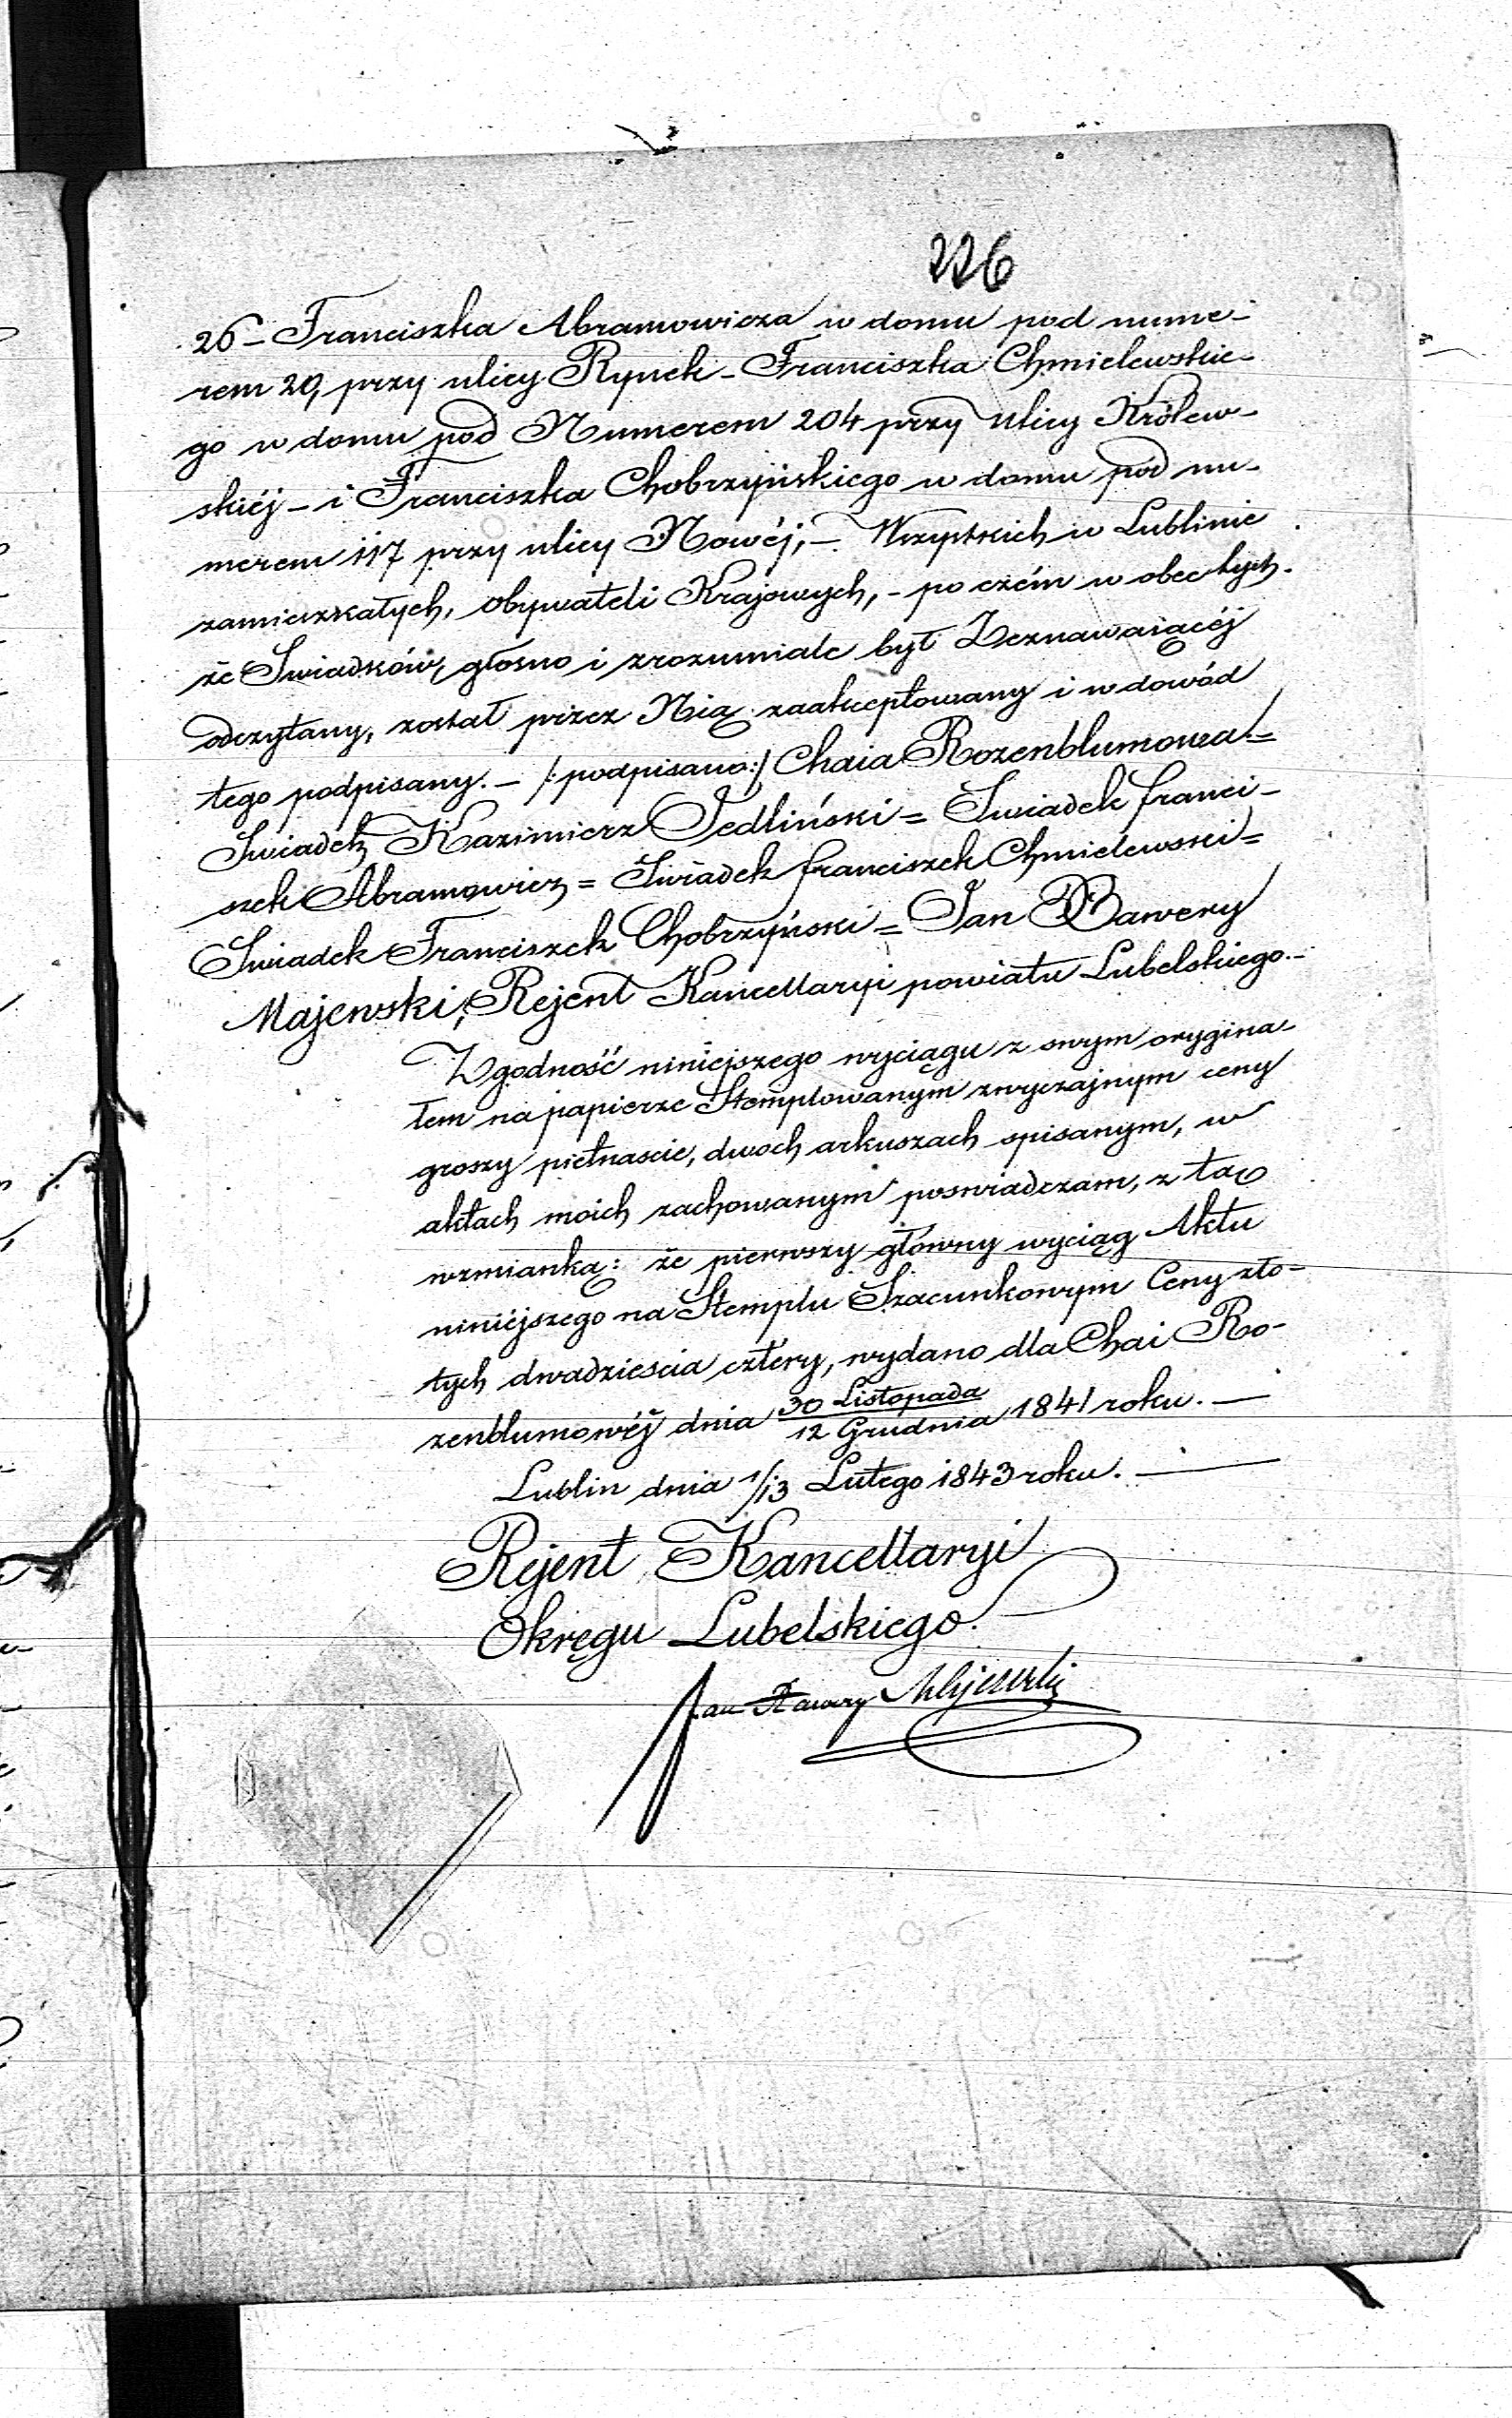 226
26 – Franciszka Abramowicza w domu pod nume-
rem 20, przy ulicy Rynek – Franciszka Chmielewskie-
go w domu pod Numerem 204 przy ulicy Królew-
skiéj – i Franciszka Chobrzyńskiego w domu pod nu-
merem 117 przy ulicy Nowéj, – Wszystkich w Lublinie
zamieszkałych, obywateli Krajowych, – po czém w obec tych-
że Swiadków, głosno i zrozumiale był Zeznawaiącéj
odczytany, został przez Nią zaakceptowany i w dowód
tego podpisany. – /:podpisano:/ Chaia Rozenblumowa =
Swiadek Kazimierz Jedliński = Swiadek franci-
szek Abramowicz = Świadek franciszek Chmielewski =
Swiadek Franciszek Chobrzyński = Jan Xawery
Majewski, Rejent Kancellaryi powiatu Lubelskiego. –
Zgodność niniejszego wyciągu z swym orygina-
łem na papierze Stemplowanym zwyczajnym ceny
groszy pietnascie, dwoch arkuszach spisanym, w
aktach moich zachowanym poswiadczam, z tą
wzmianką: że pierwszy główny wyciąg Aktu
niniéjszego na Stemplu Szacunkowym Ceny zło-
tych dwadziescia cztery, wydano dla Chai Ro-
zenblumowéj dnia 30 Listopada / 12 Grudnia 1841 roku. —
Lublin dnia 1/13 Lutego 1843 roku. —
Rejent Kancellaryi
Okręgu Lubelskiego.
Jan Xawery Majewski